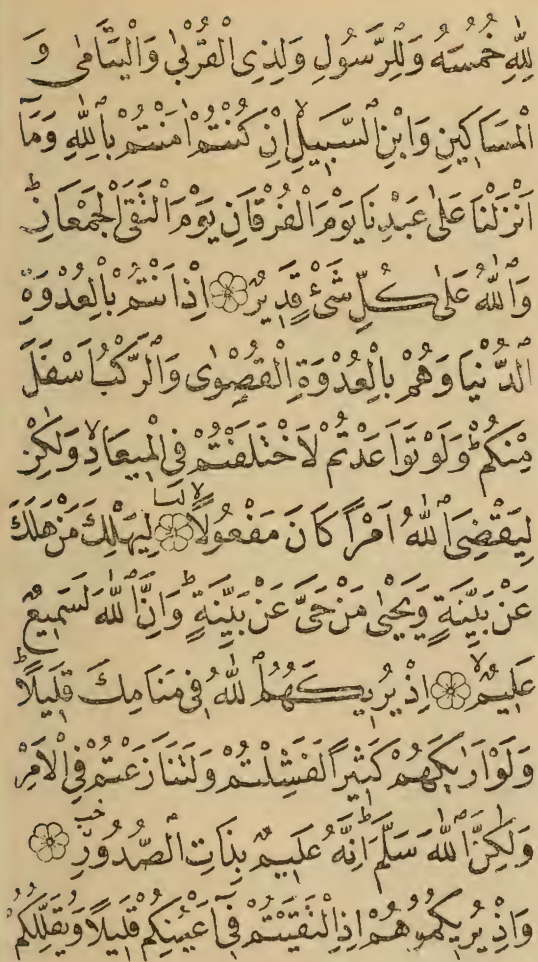 لِلّٰهِ خُمُسَهُ وَلِلرَّسُولِ وَلِذِى الْقُرْبٰى وَالْيَتَامٰى وَ
الْمَسَاكِينِ وَابْنِ السَّبِيلِ اِنْ كُنْتُمْ اٰمَنْتُمْ بِاللّٰهِ وَمَآ
اَنْزَلْنَا عَلٰى عَبْدِنَا يَوْمَ الْفُرْقَانِ يَوْمَ الْتَقَى الْجَمْعَانِ ط
وَاللّٰهُ عَلٰى كُلِّ شَىْءٍ قَدِيرٌ ۝ اِذْ اَنْتُمْ بِالْعُدْوَةِ
الدُّنْيَا وَهُمْ بِالْعُدْوَةِ الْقُصْوٰى وَالرَّكْبُ اَسْفَلَ
مِنْكُمْ ط وَلَوْ تَوَاعَدْتُمْ لَاخْتَلَفْتُمْ فِى الْمِيعَادِ لا وَلٰكِنْ
لِيَقْضِىَ اللّٰهُ اَمْرًا كَانَ مَفْعُولًا ۝ لِيَهْلِكَ مَنْ هَلَكَ
عَنْ بَيِّنَةٍ وَيَحْيٰى مَنْ حَىَّ عَنْ بَيِّنَةٍ ط وَاِنَّ اللّٰهَ لَسَمِيعٌ
عَلِيمٌ لا ۝ اِذْ يُرِيكَهُمُ اللّٰهُ فِى مَنَامِكَ قَلِيلًا ط
وَلَوْ اَرٰيكَهُمْ كَثِيرًا لَفَشِلْتُمْ وَلَتَنَازَعْتُمْ فِى الْاَمْرِ
وَلٰكِنَّ اللّٰهَ سَلَّمَ ط اِنَّهُ عَلِيمٌ بِذَاتِ الصُّدُورِ ۝
وَاِذْ يُرِيكُمُوهُمْ اِذِ الْتَقَيْتُمْ فِىٓ اَعْيُنِكُمْ قَلِيلًا وَيُقَلِّلُكُمْ